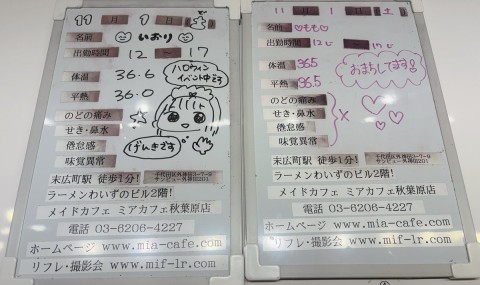 11 月 1 日
名前 いおり
出勤時間 12 ～ 17
体温 36.6
平熱 36.0
ハロウィン
イベント中だよ
のどの痛み
せき・鼻水
倦怠感
味覚異常
げんきです
末広町駅 徒歩1分!
千代田区外神田3-7-9
ラーメンわいずのビル2階!
メイドカフェ ミアカフェ秋葉原店
電話 03-6206-4227
ホームページ www.mia-cafe.com
リフレ・撮影会 www.mif-lr.com
11 月 1 日 土
名前 ♡もも♡
出勤時間 12
体温 36.5
平熱 36.5
おまちしてます!
のどの痛み
せき・鼻水
倦怠感
味覚異常
×
末広町駅 徒歩1分!
千代田区外神田3-7-9
ラーメンわいずのビル2階!
メイドカフェ ミアカフェ秋葉原店
電話 03-6206-4227
ホームページ www.mia-cafe.com
リフレ・撮影会 www.mif-lr.com